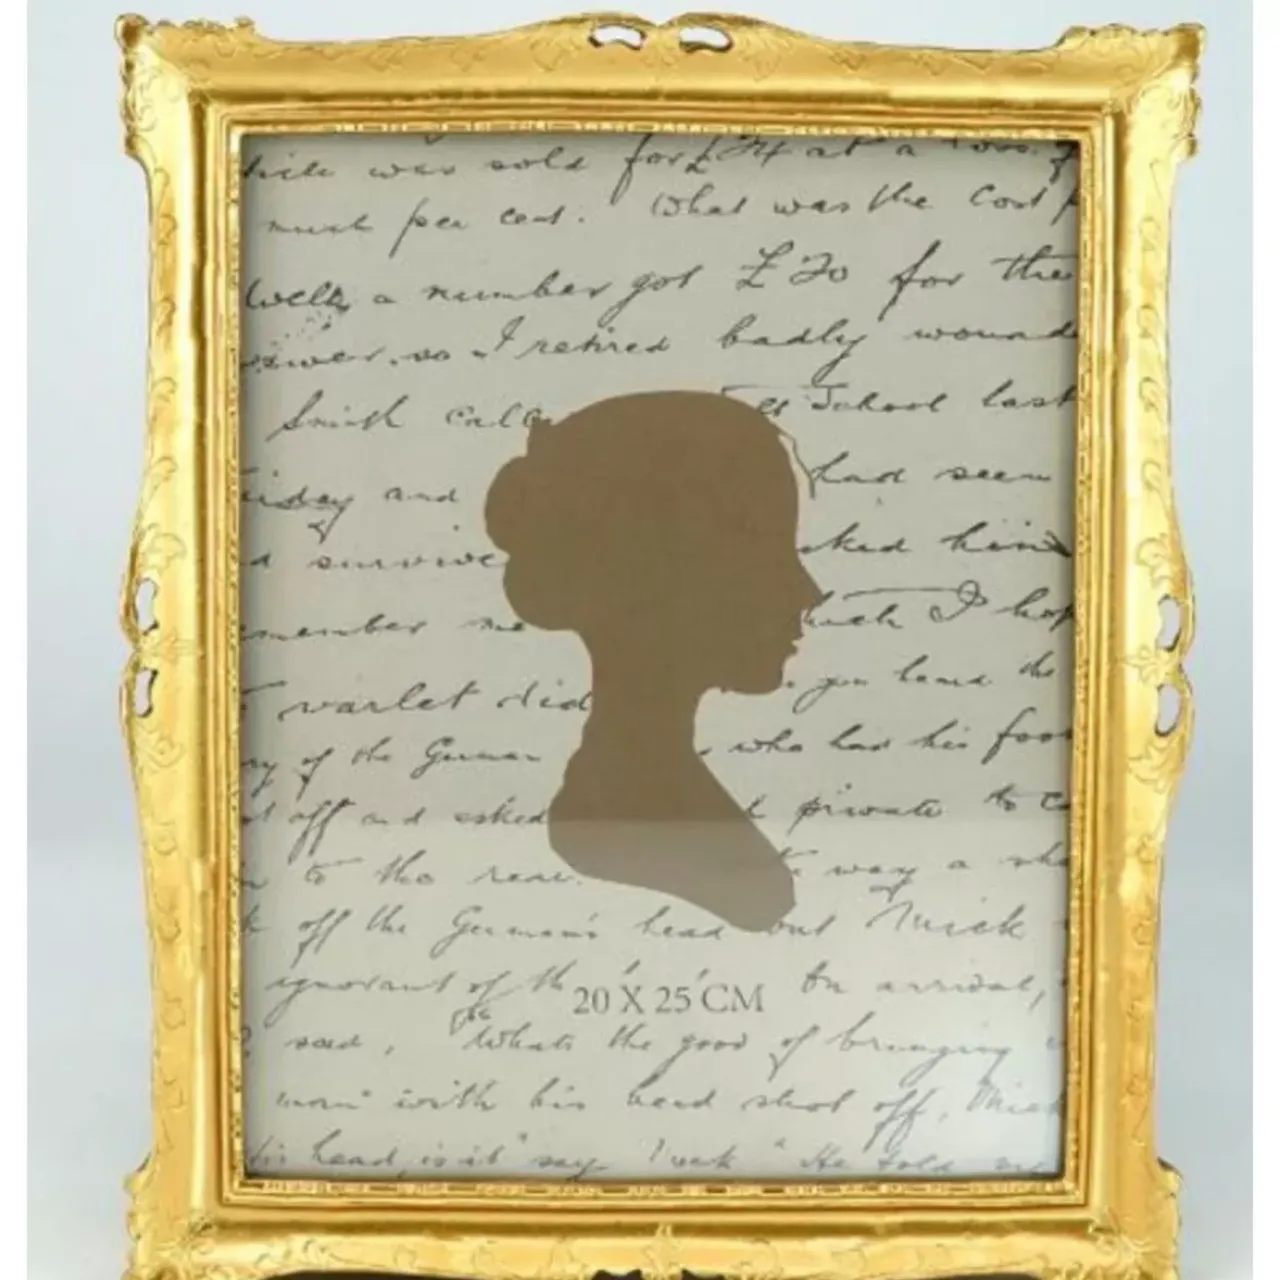 was sold for £24 at a loss of
much per cent. What was the cost
Well, a number got £20 for the
so I retired badly
Smith School last
and had seen
survive asked him
me which I hop
varlet did you the
of the German who had his foot
off and asked private to
to the rear. way a
off the German's head but Mick
ignorant of th On arrival,
20 X 25 CM
said, "Whats the good of bringing
man with his head shot off, Mick
his head, is it" say Mick "He told